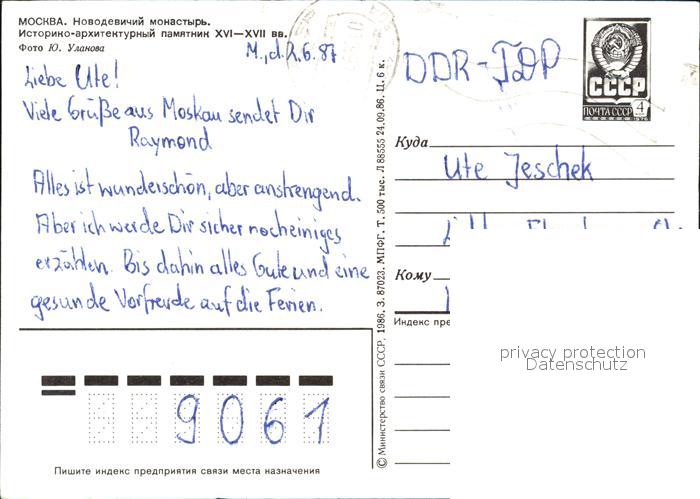 МОСКВА. Новодевичий монастырь.
Историко-архитектурный памятник XVI—XVII вв.
Фото Ю. Уланова
M., d. 2.6.87
Liebe Ute!
Viele Grüße aus Moskau sendet Dir
Raymond
Alles ist wunderschön, aber anstrengend.
Aber ich werde Dir sicher noch einiges
erzählen. Bis dahin alles Gute und eine
gesunde Vorfreude auf die Ferien.
9061
Пишите индекс предприятия связи места назначения
© Министерство связи СССР, 1986. З. 87023. МПФГ. Т. 500 тыс. Л 88555 24.09.86. Ц. 6 к.
DDR-ГДР
СССР
ПОЧТА СССР 4
1976
Куда
Ute Jeschek
Кому
Индекс пре
privacy protection
Datenschutz